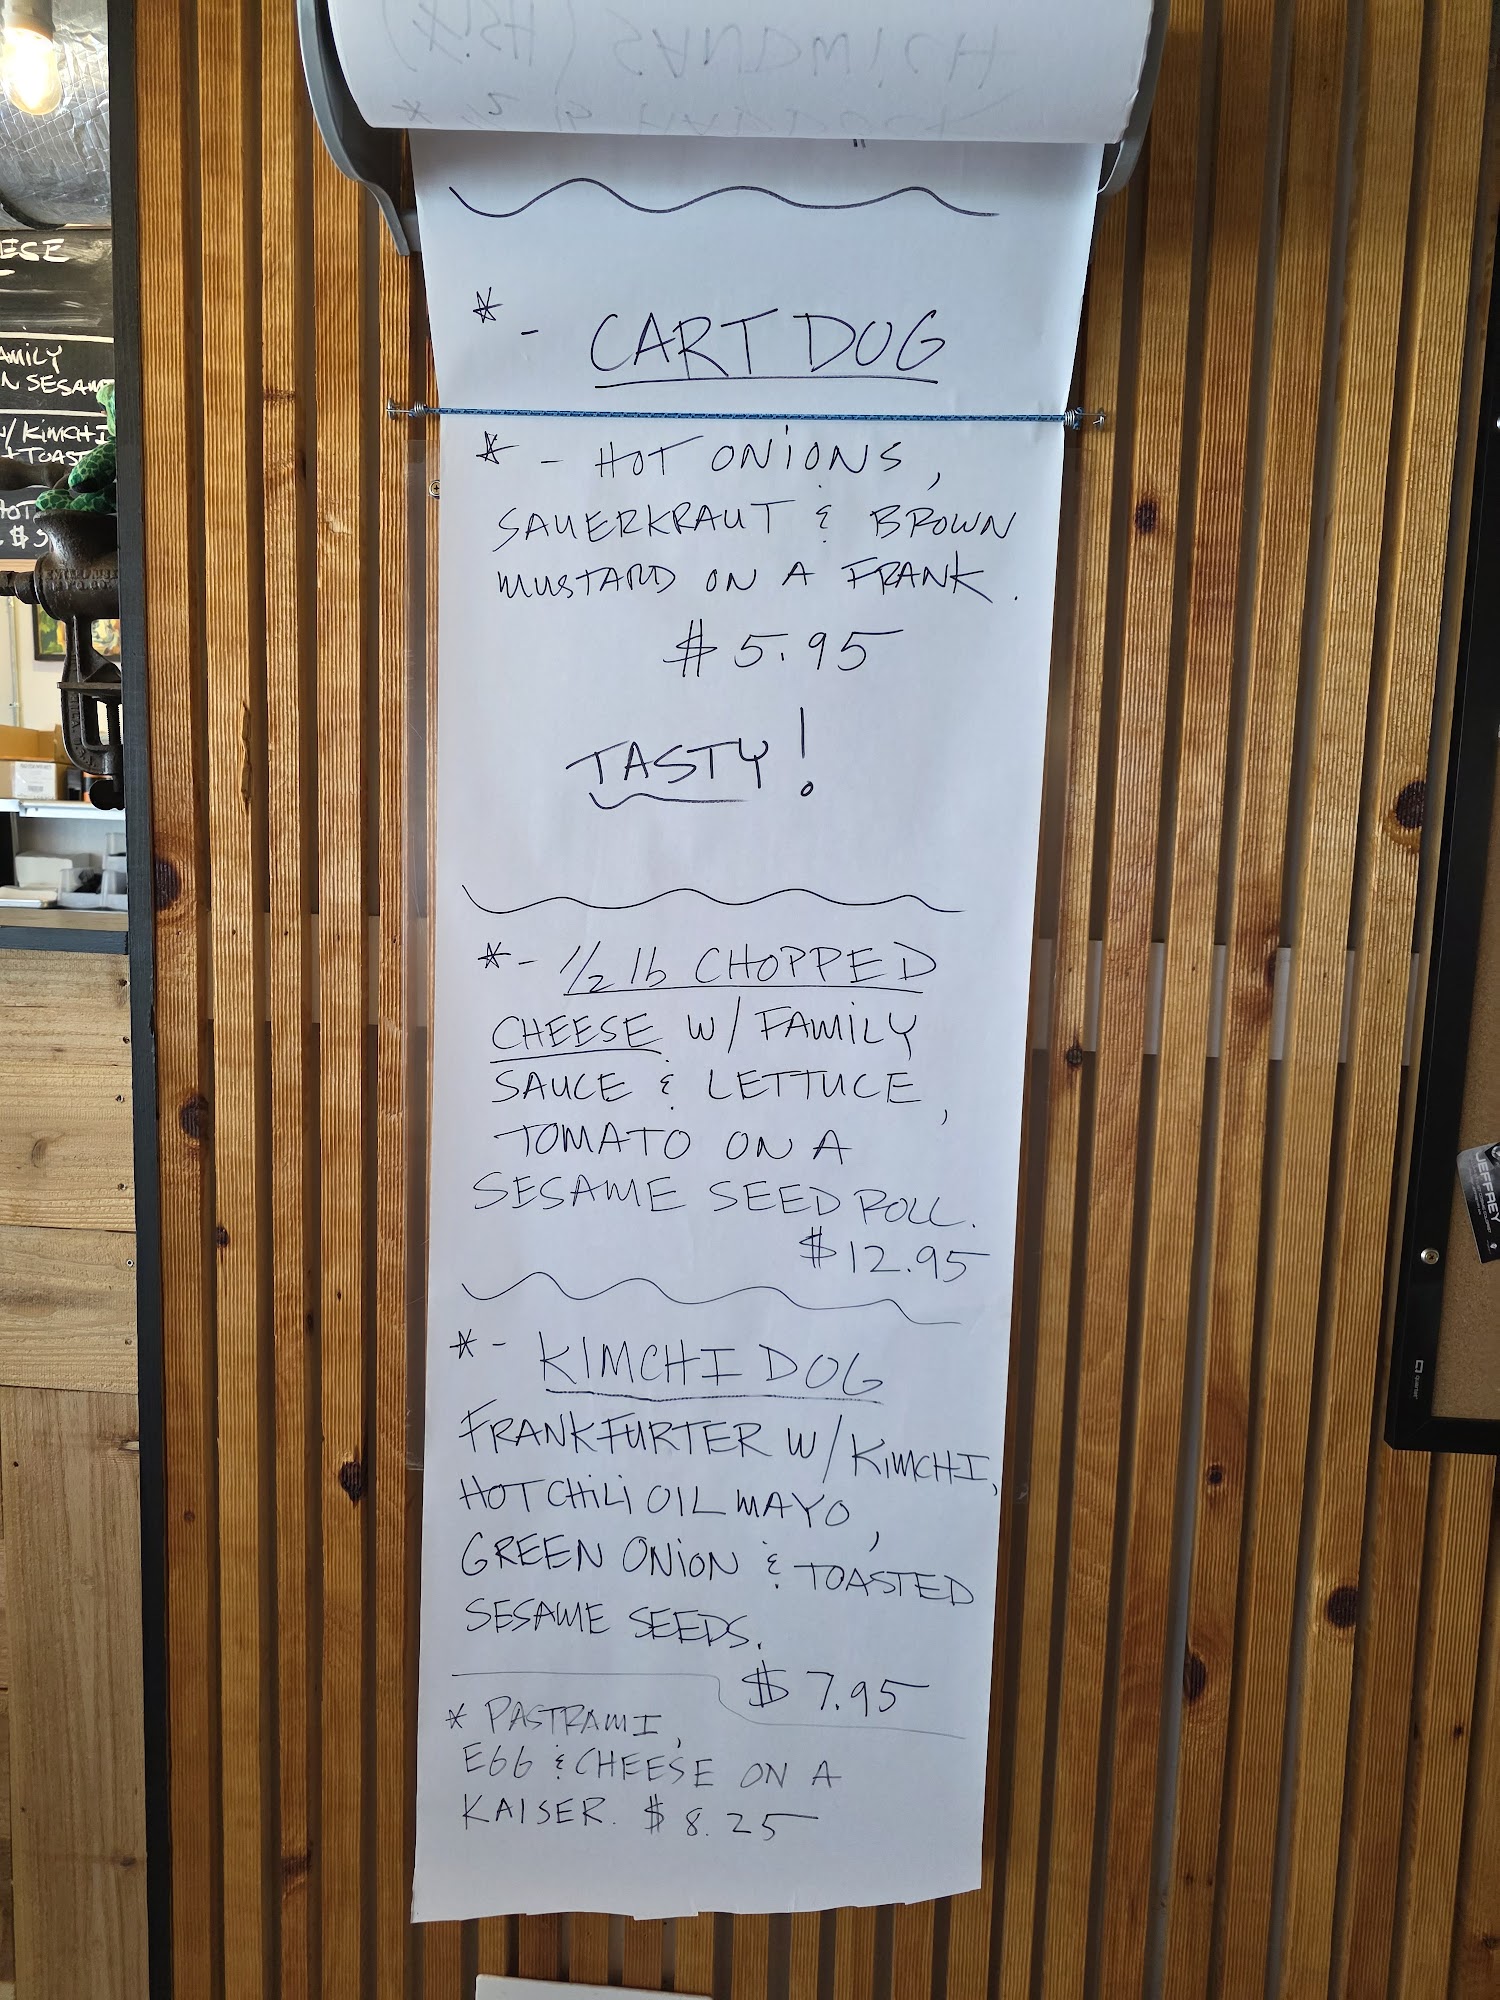 * - CART DOG
* - HOT ONIONS,
SAUERKRAUT & BROWN
MUSTARD ON A FRANK.
$5.95
TASTY!
* - 1/2 lb CHOPPED
CHEESE W/ FAMILY
SAUCE & LETTUCE,
TOMATO ON A
SESAME SEED ROLL.
$12.95
* - KIMCHI DOG
FRANKFURTER W/ KIMCHI,
HOT CHILI OIL MAYO,
GREEN ONION & TOASTED
SESAME SEEDS.
$7.95
* PASTRAMI,
EGG & CHEESE ON A
KAISER. $8.25
ESE
AMILY
N SESAM
W/ KIMCHI
+ TOAST
HOT
$3
JEFFREY